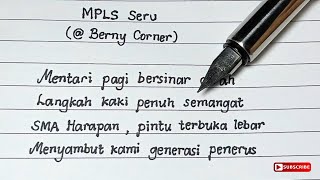 MPLS Seru
(@ Berny Corner)
Mentari pagi bersinar
Langkah kaki penuh semangat
SMA Harapan, pintu terbuka lebar
Menyambut kami generasi penerus
SUBSCRIBE